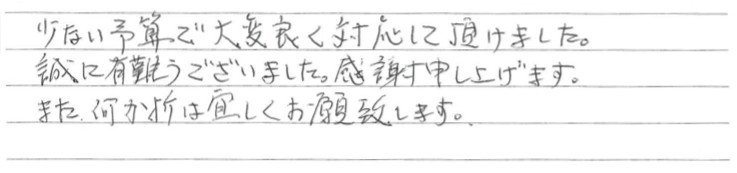 少ない予算で大変良く対応して頂けました。
誠に有難うございました。感謝申し上げます。
また、何か折は宜しくお願致します。